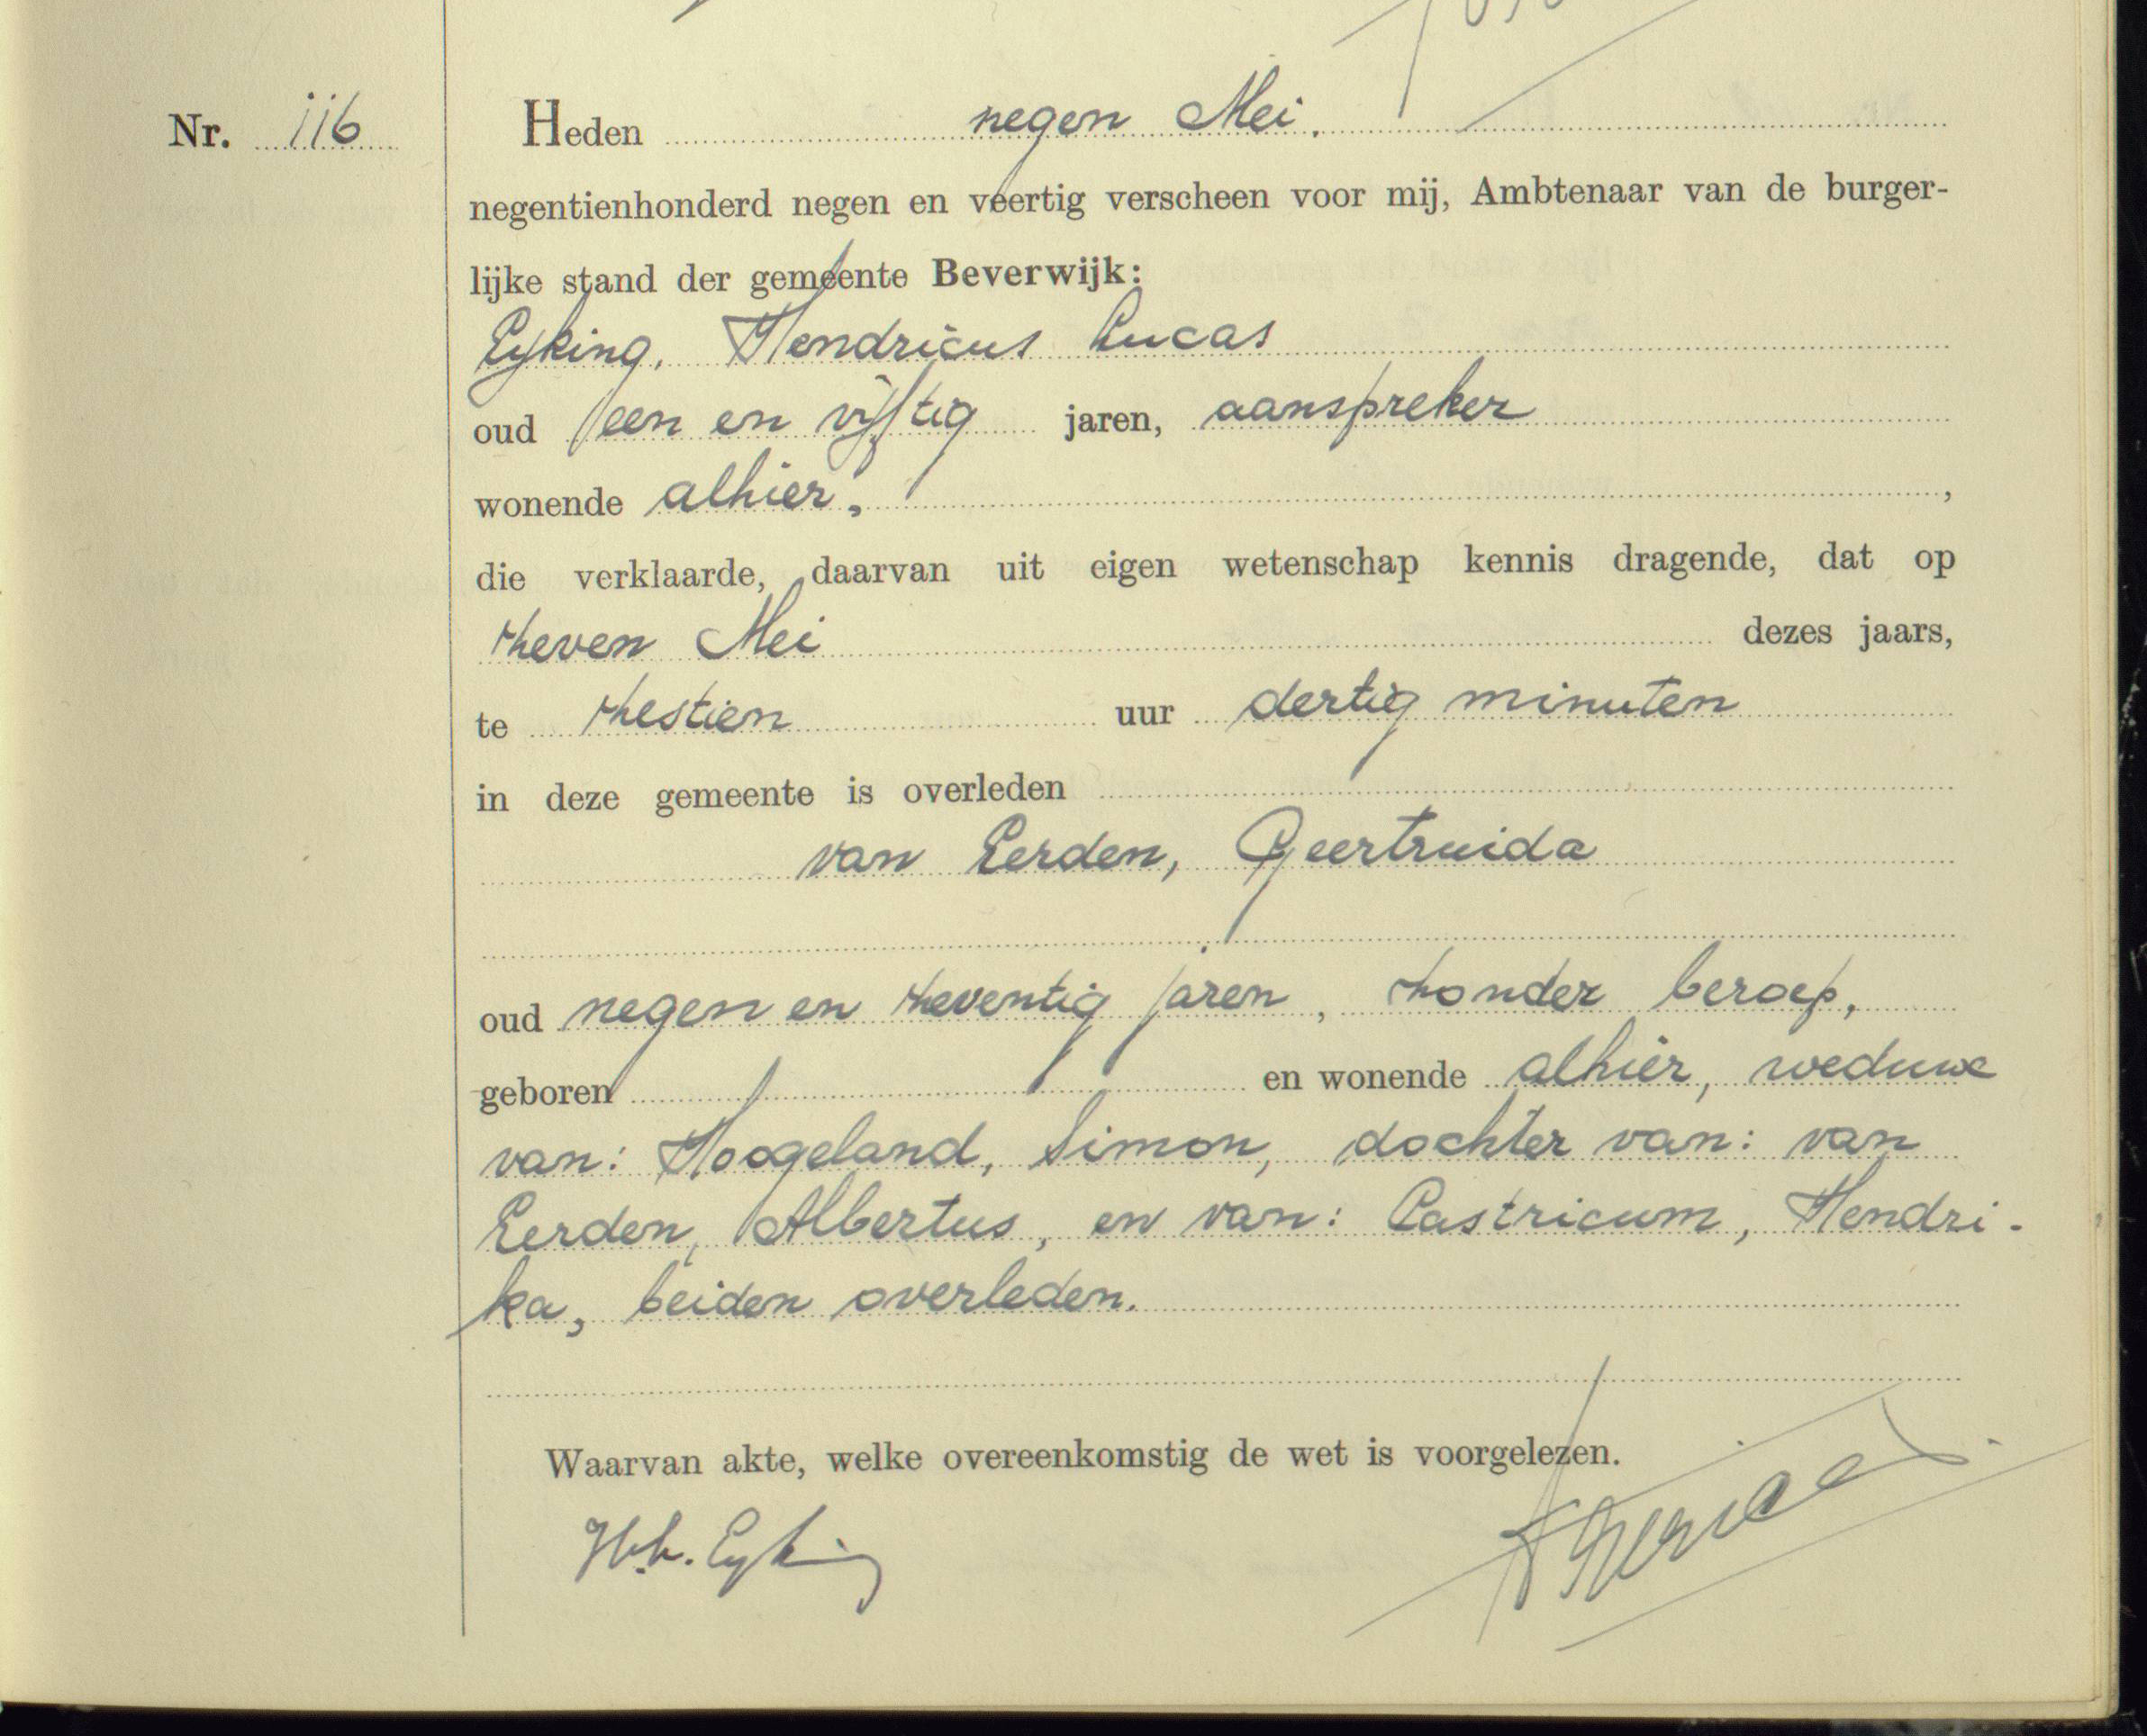 Nr. 116
Heden negen Mei.
negentienhonderd negen en veertig verscheen voor mij, Ambtenaar van de burger-
lijke stand der gemeente Beverwijk:
Eyking, Hendricus Lucas
oud een en vijftig jaren, aanspreker
wonende alhier, ,
die verklaarde, daarvan uit eigen wetenschap kennis dragende, dat op
zeven Mei dezes jaars,
te zestien uur dertig minuten
in deze gemeente is overleden
van Eerden, Geertruida
oud negen en zeventig jaren, zonder beroep,
geboren en wonende alhier, weduwe
van: Hoogeland, Simon, dochter van: van
Eerden, Albertus, en van: Castricum, Hendri-
ka, beiden overleden.
Waarvan akte, welke overeenkomstig de wet is voorgelezen.
H.L. Eyking